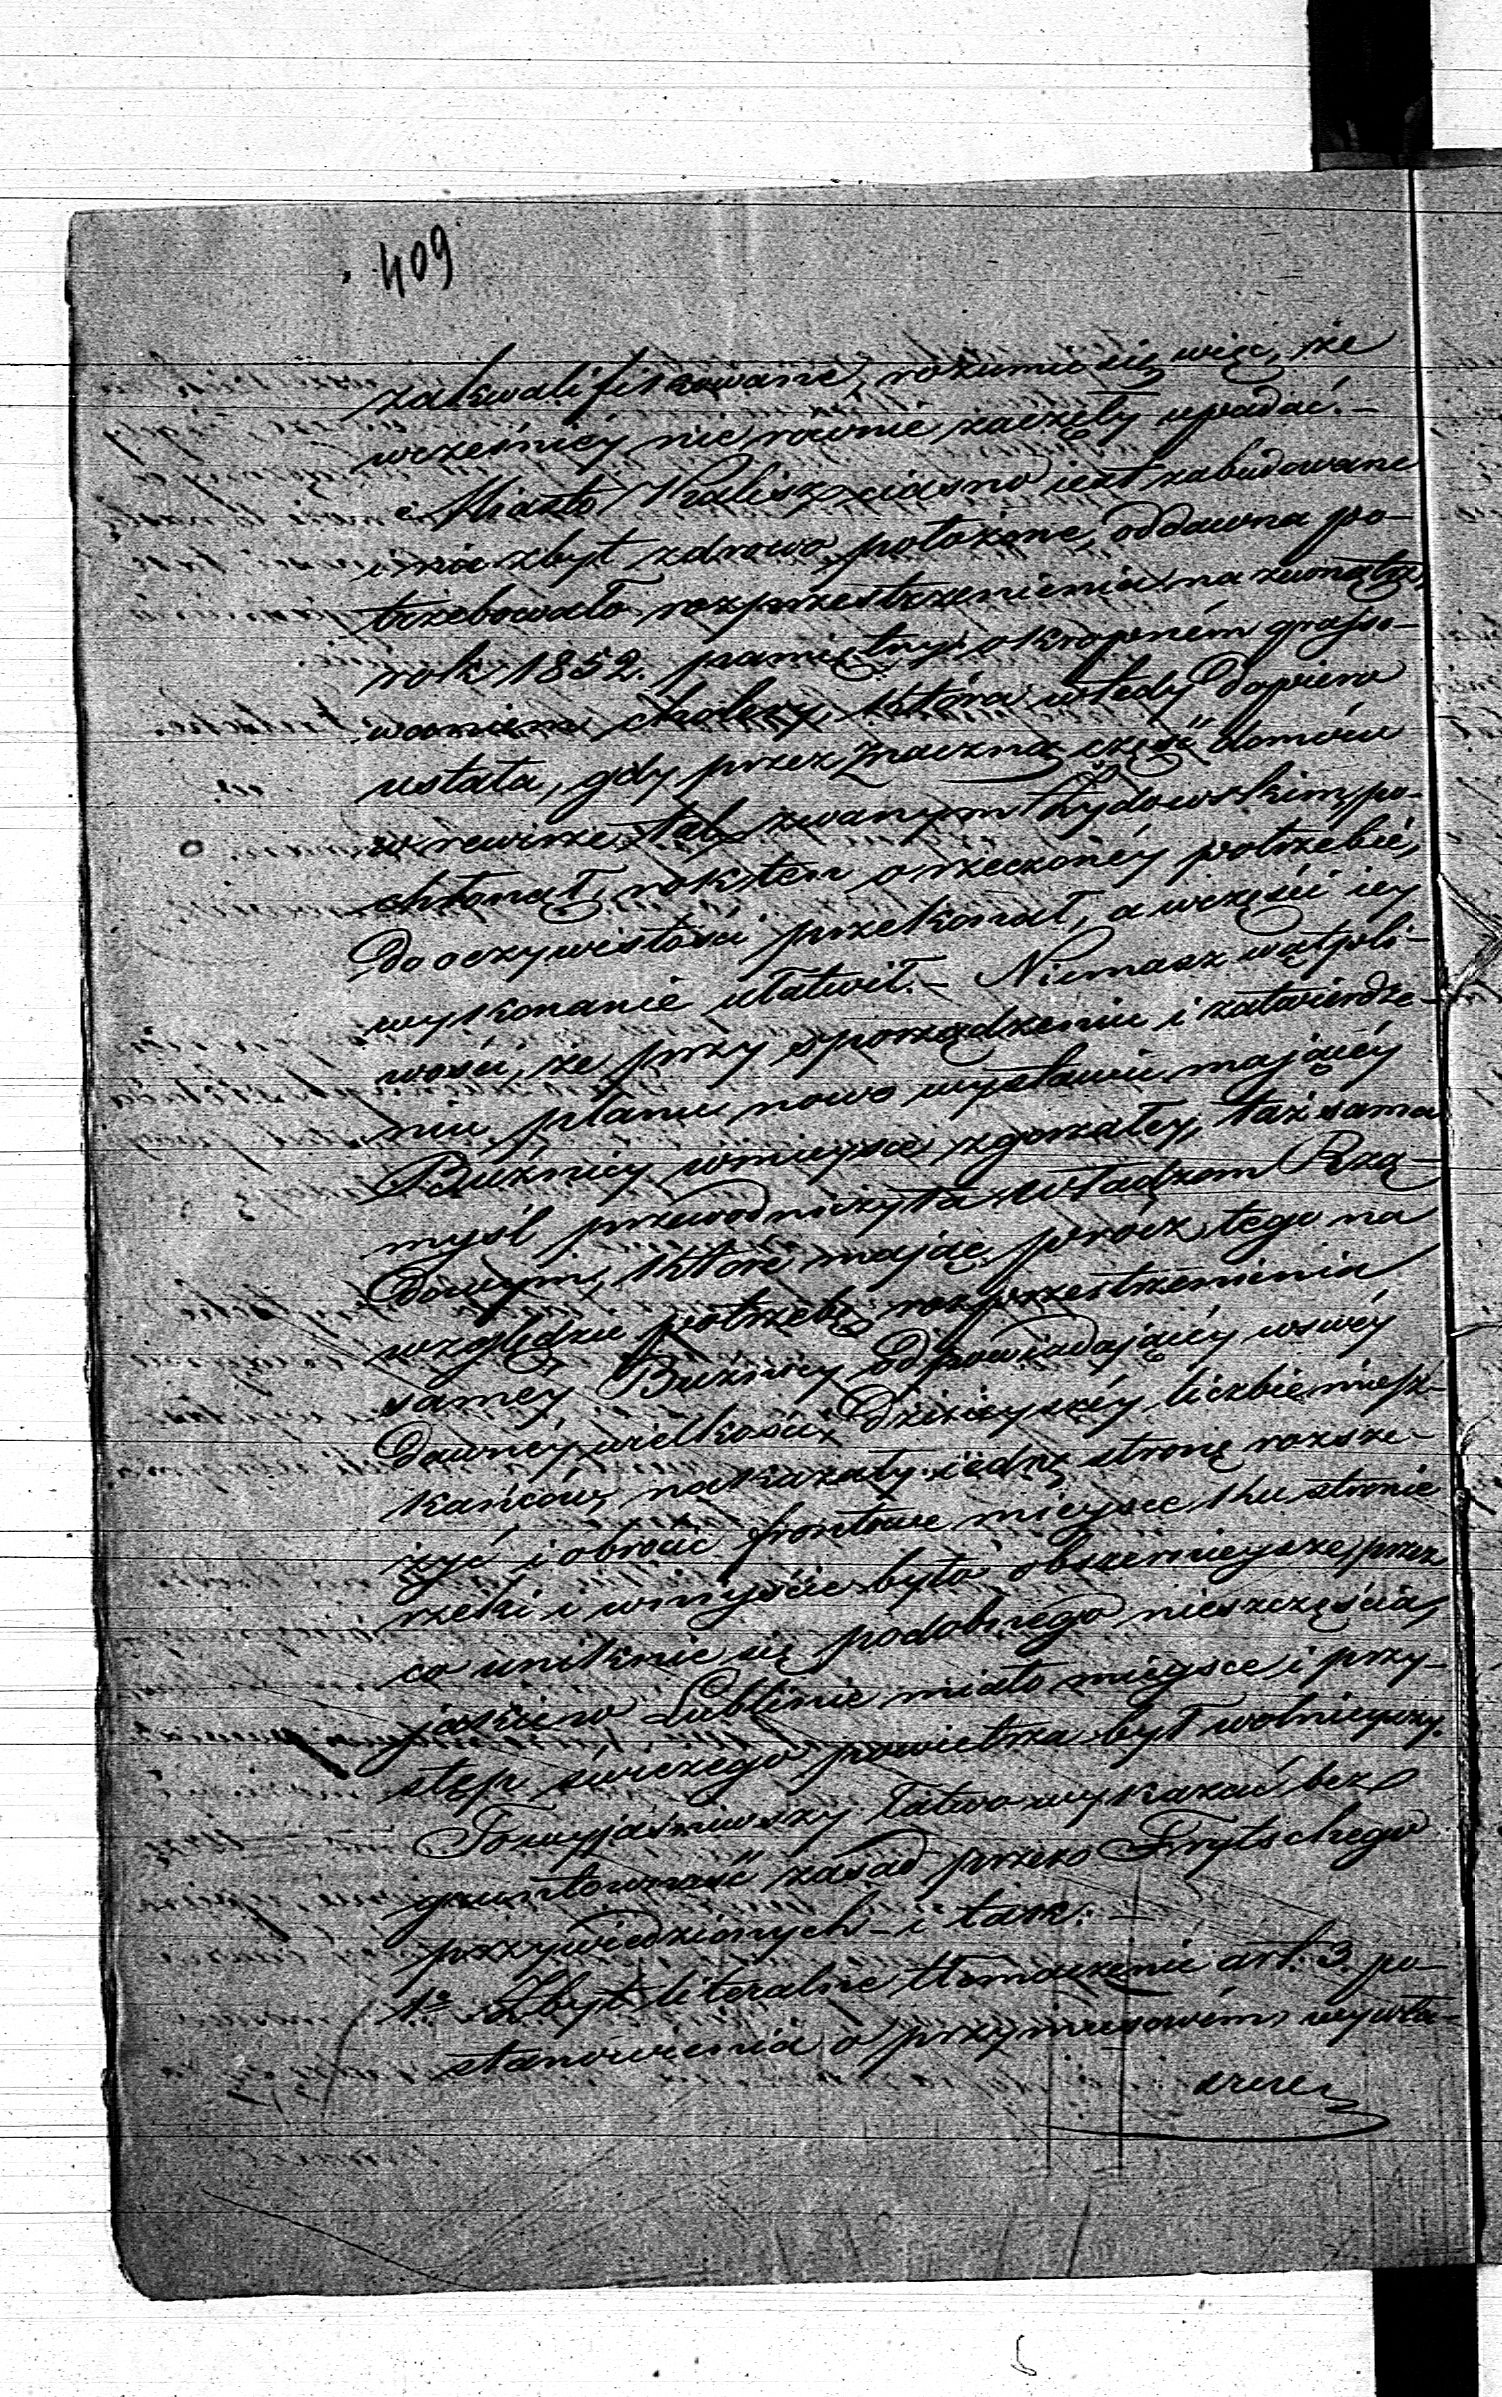 409
zakwalifikowane, rozumie się więc, że
wcześniéy nierównie zaczęły upadać.-
Miasto Kalisz ciasno iest zabudowane
i nie zbyt zdrowo położone, oddawna po-
trzebowało rozprzestrzenienia na zewnątrz,
rok 1852. pamiętny okropném grasso-
waniem cholery, która wtedy dopiero
ustała, gdy przez znaczną część domów
w rewirze tak zwanym żydowskim, po-
chłonął, rok ten o rzeczonéy potrzebie,
do oczywistości przekonał, a wczęści iey
wykonanie ułatwił.- Niemasz wątpli-
wości, że przy sporządzeniu i zatwierdze-
niu planu nowo wystawić maiącéy
Buźnicy wmieysce zgorzałey, taż sama
myśl przewodniczyła Władzom Rzą-
dowym, które mając prócz tego na
względzie potrzebę rozprzestrzenienia
saméy Buźnicy odpowiadającéy wswéy
dawnéy wielkości dzisieyszéy liczbie miesz-
kańców, nakazały iedną stronę rozsze-
rzyć i obrócić frontowe mieysce ku stronie
rzeki i wniyście było obszernieysze, przez
co uniknie się podobnego nieszczęścia,
jakie w Lublinie miało mieysce i przy-
stęp świeżego powietrza był wolnieyszy.
To wyjaśniwszy łatwo wykazać bez
gruntowność zasad przez Frytschego
przywiedzionych - i tak: -
1º Zbyt literalne tłomaczenie art. 3. po-
stanowienia o przymusowém wywła-